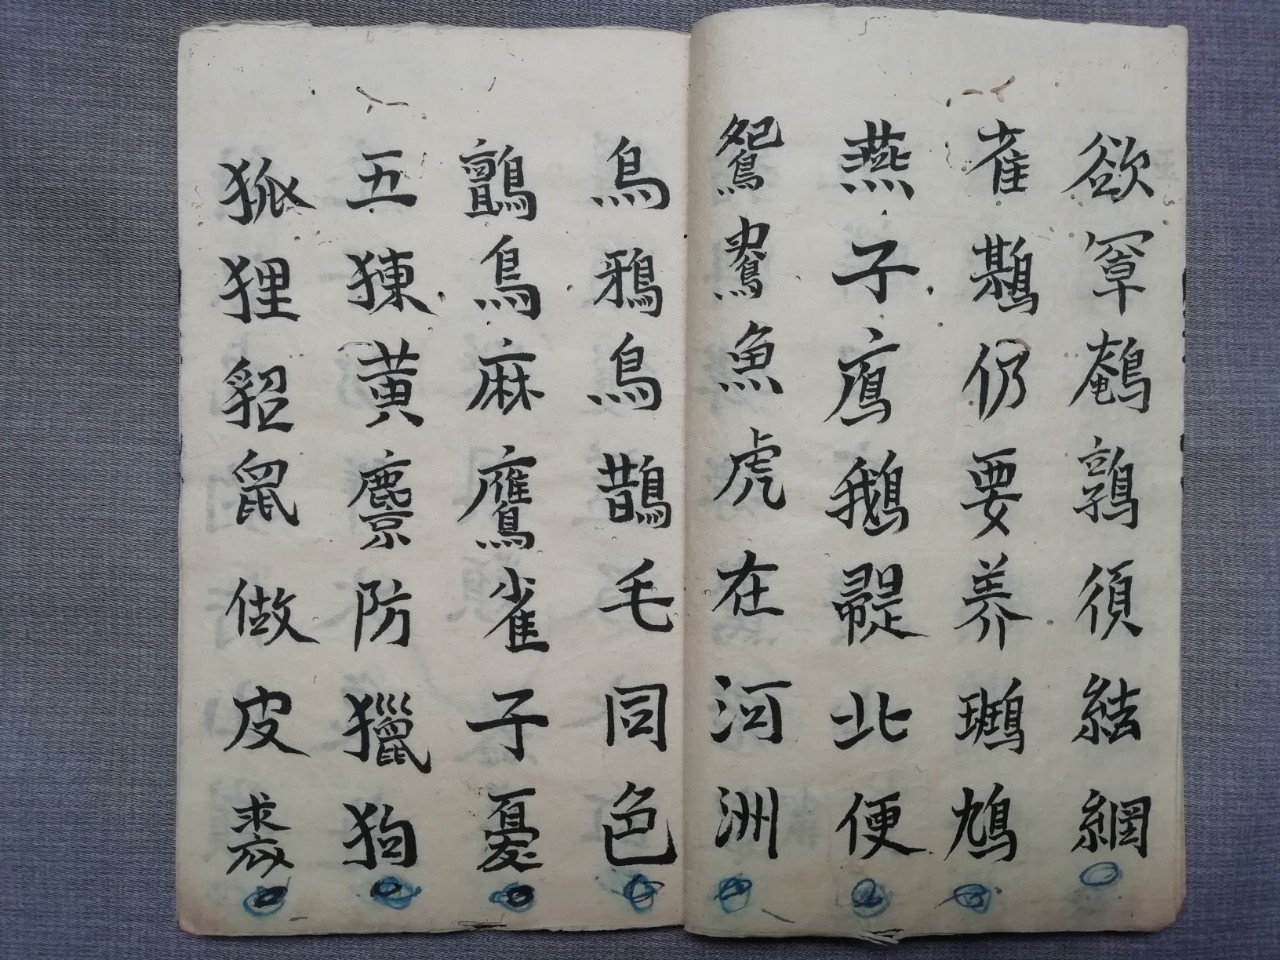 欲罩鵪鶉須結網
雀鷚仍要养鵓鳩
燕子鷹鵝鶗北便
鴛鴦魚虎在河洲
鳥鴉鳥鵲毛同色
鸇鳥麻鷹雀子憂
五㹨黃麖防獵狗
狐狸貂鼠做皮裘